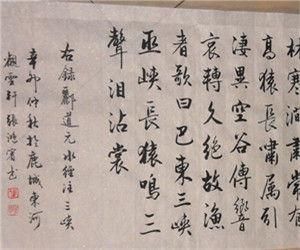 林寒澗肅常有
高猿長嘯屬引
淒異空谷傳響
哀轉久絕故漁
者歌曰巴東三峽
巫峽長猿鳴三
聲淚沾裳
右錄酈道元水經注三峽
辛卯仲秋於鹿城東河
雲軒張鴻賓書